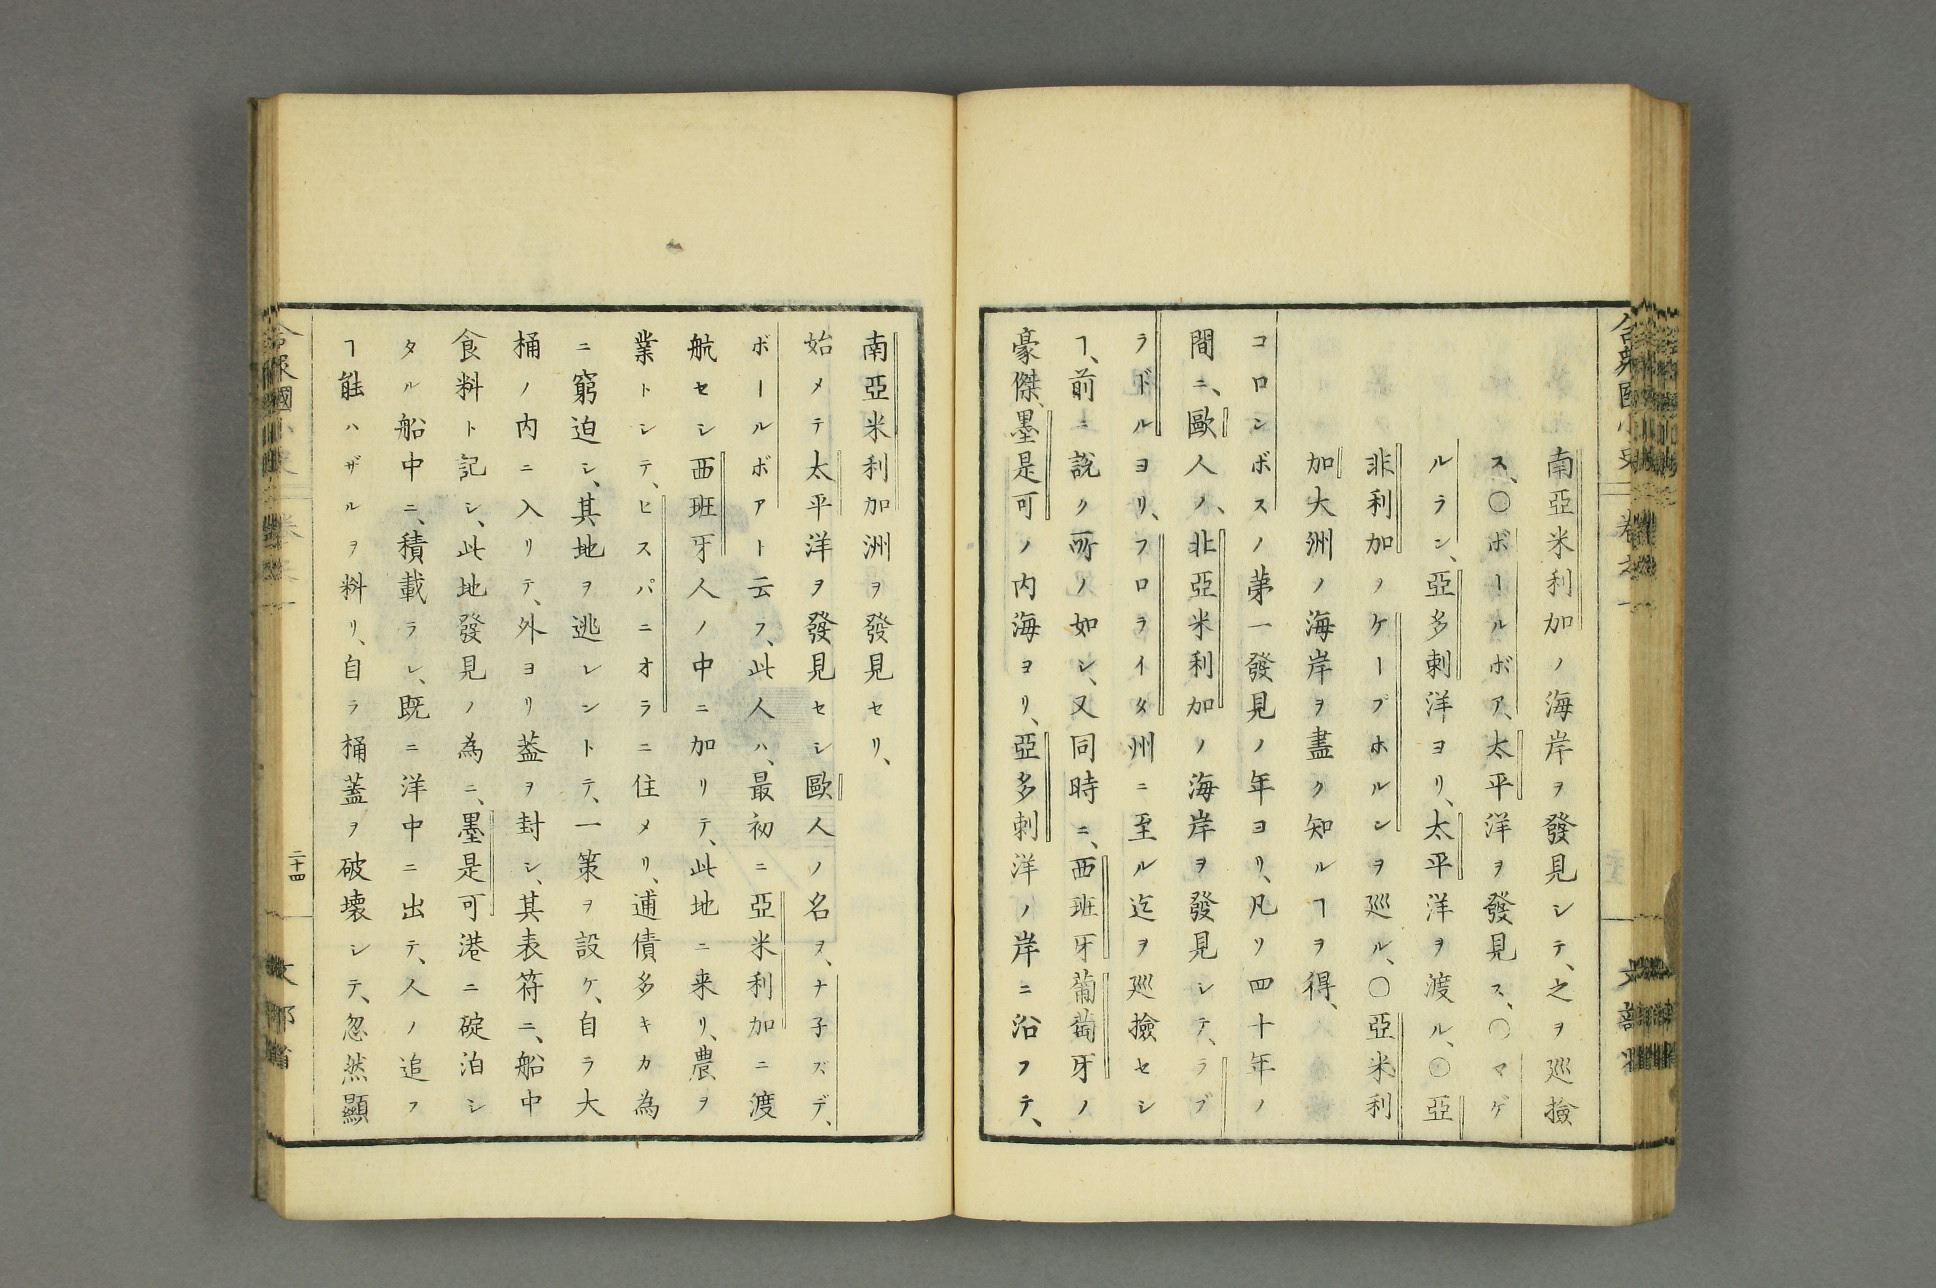 南亞米利加ノ海岸ヲ發見シテ、之ヲ廵撿
ス、〇ボールボア、太平洋ヲ發見ス、〇マゲ
ルラン、亞多剌洋ヨリ、太平洋ヲ渡ル、〇亞
非利加ノケープホルンヲ廵ル、〇亞米利
加大洲ノ海岸ヲ盡ク知ルヿヲ得、
コロンボスノ第一發見ノ年ヨリ、凡ソ四十年ノ
間ニ、歐人ノ、北亞米利加ノ海岸ヲ發見シテ、ラブ
ラドルヨリ、フロライタ州ニ至ル迄ヲ廵撿セシ
ヿ、前ニ說ク所ノ如シ、又同時ニ、西班牙葡萄牙ノ
豪傑、墨是可ノ内海ヨリ、亞多剌洋ノ岸ニ沿フテ、
南亞米利加洲ヲ發見セリ、
始メテ太平洋ヲ發見セシ歐人ノ名ヲ、ナ子ズデ、
ボールボアト云フ、此人ハ、最初ニ亞米利加ニ渡
航セシ西班牙人ノ中ニ加リテ、此地ニ来リ、農ヲ
業トシテ、ヒスパニオラニ住メリ、逋債多キカ為
ニ窮迫シ、其地ヲ逃レントテ、一策ヲ設ケ、自ラ大
桶ノ内ニ入リテ、外ヨリ葢ヲ封シ、其表符ニ、船中
食料ト記シ、此地發見ノ為ニ、墨是可港ニ碇泊シ
タル船中ニ、積載ラレ、既ニ洋中ニ出テ、人ノ追フ
ヿ能ハザルヲ料リ、自ラ桶葢ヲ破壊シテ、忽然顯
二十四